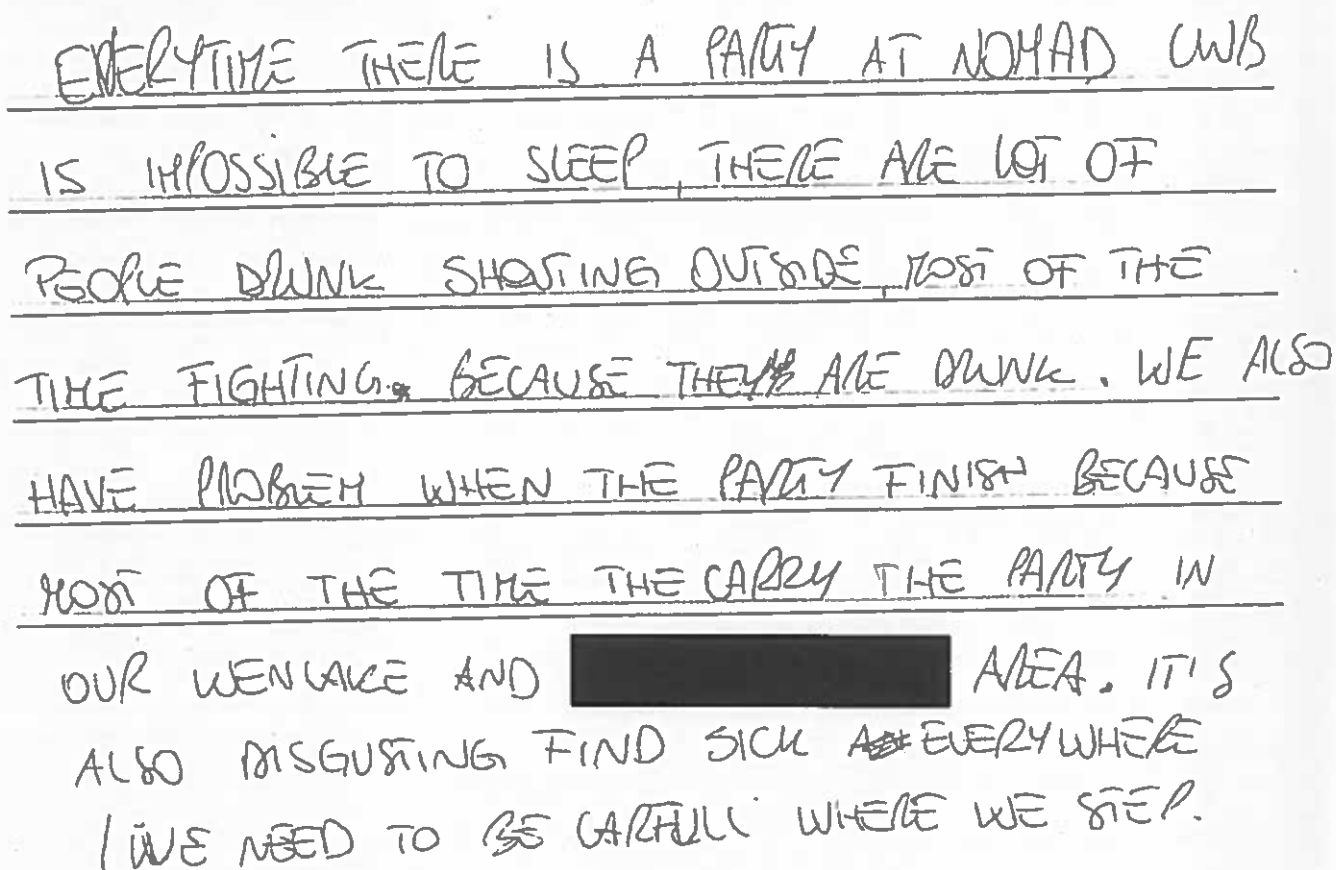 EVERYTIME THERE IS A PARTY AT NOMAD CLUB
IS IMPOSSIBLE TO SLEEP, THERE ARE LOT OF
PEOPLE DRUNK SHOUTING OUTSIDE, MOST OF THE
TIME FIGHTING. BECAUSE THEY ARE DRUNK. WE ALSO
HAVE PROBLEM WHEN THE PARTY FINISH BECAUSE
MOST OF THE TIME THE CARRY THE PARTY IN
OUR WENLAKE AND AREA. IT'S
ALSO DISGUSTING FIND SICK EVERYWHERE
/ WE NEED TO BE CARFULL WHERE WE STEP.